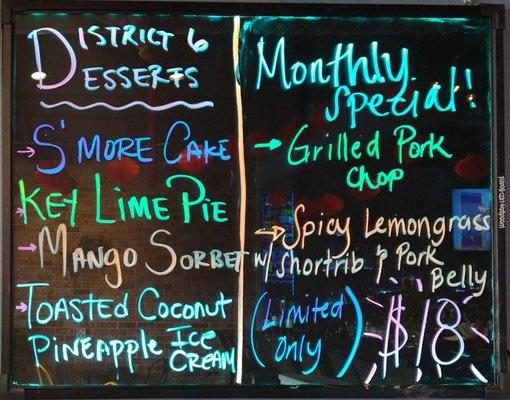 District 6
Desserts
→ S'more Cake
→ Key Lime Pie
→ Mango Sorbet
→ Toasted Coconut
Pineapple Ice
Cream
Monthly
Special!
→ Grilled Pork
Chop
→ Spicy Lemongrass
w/ Shortrib & Pork
Belly
(Limited
Only)
$18